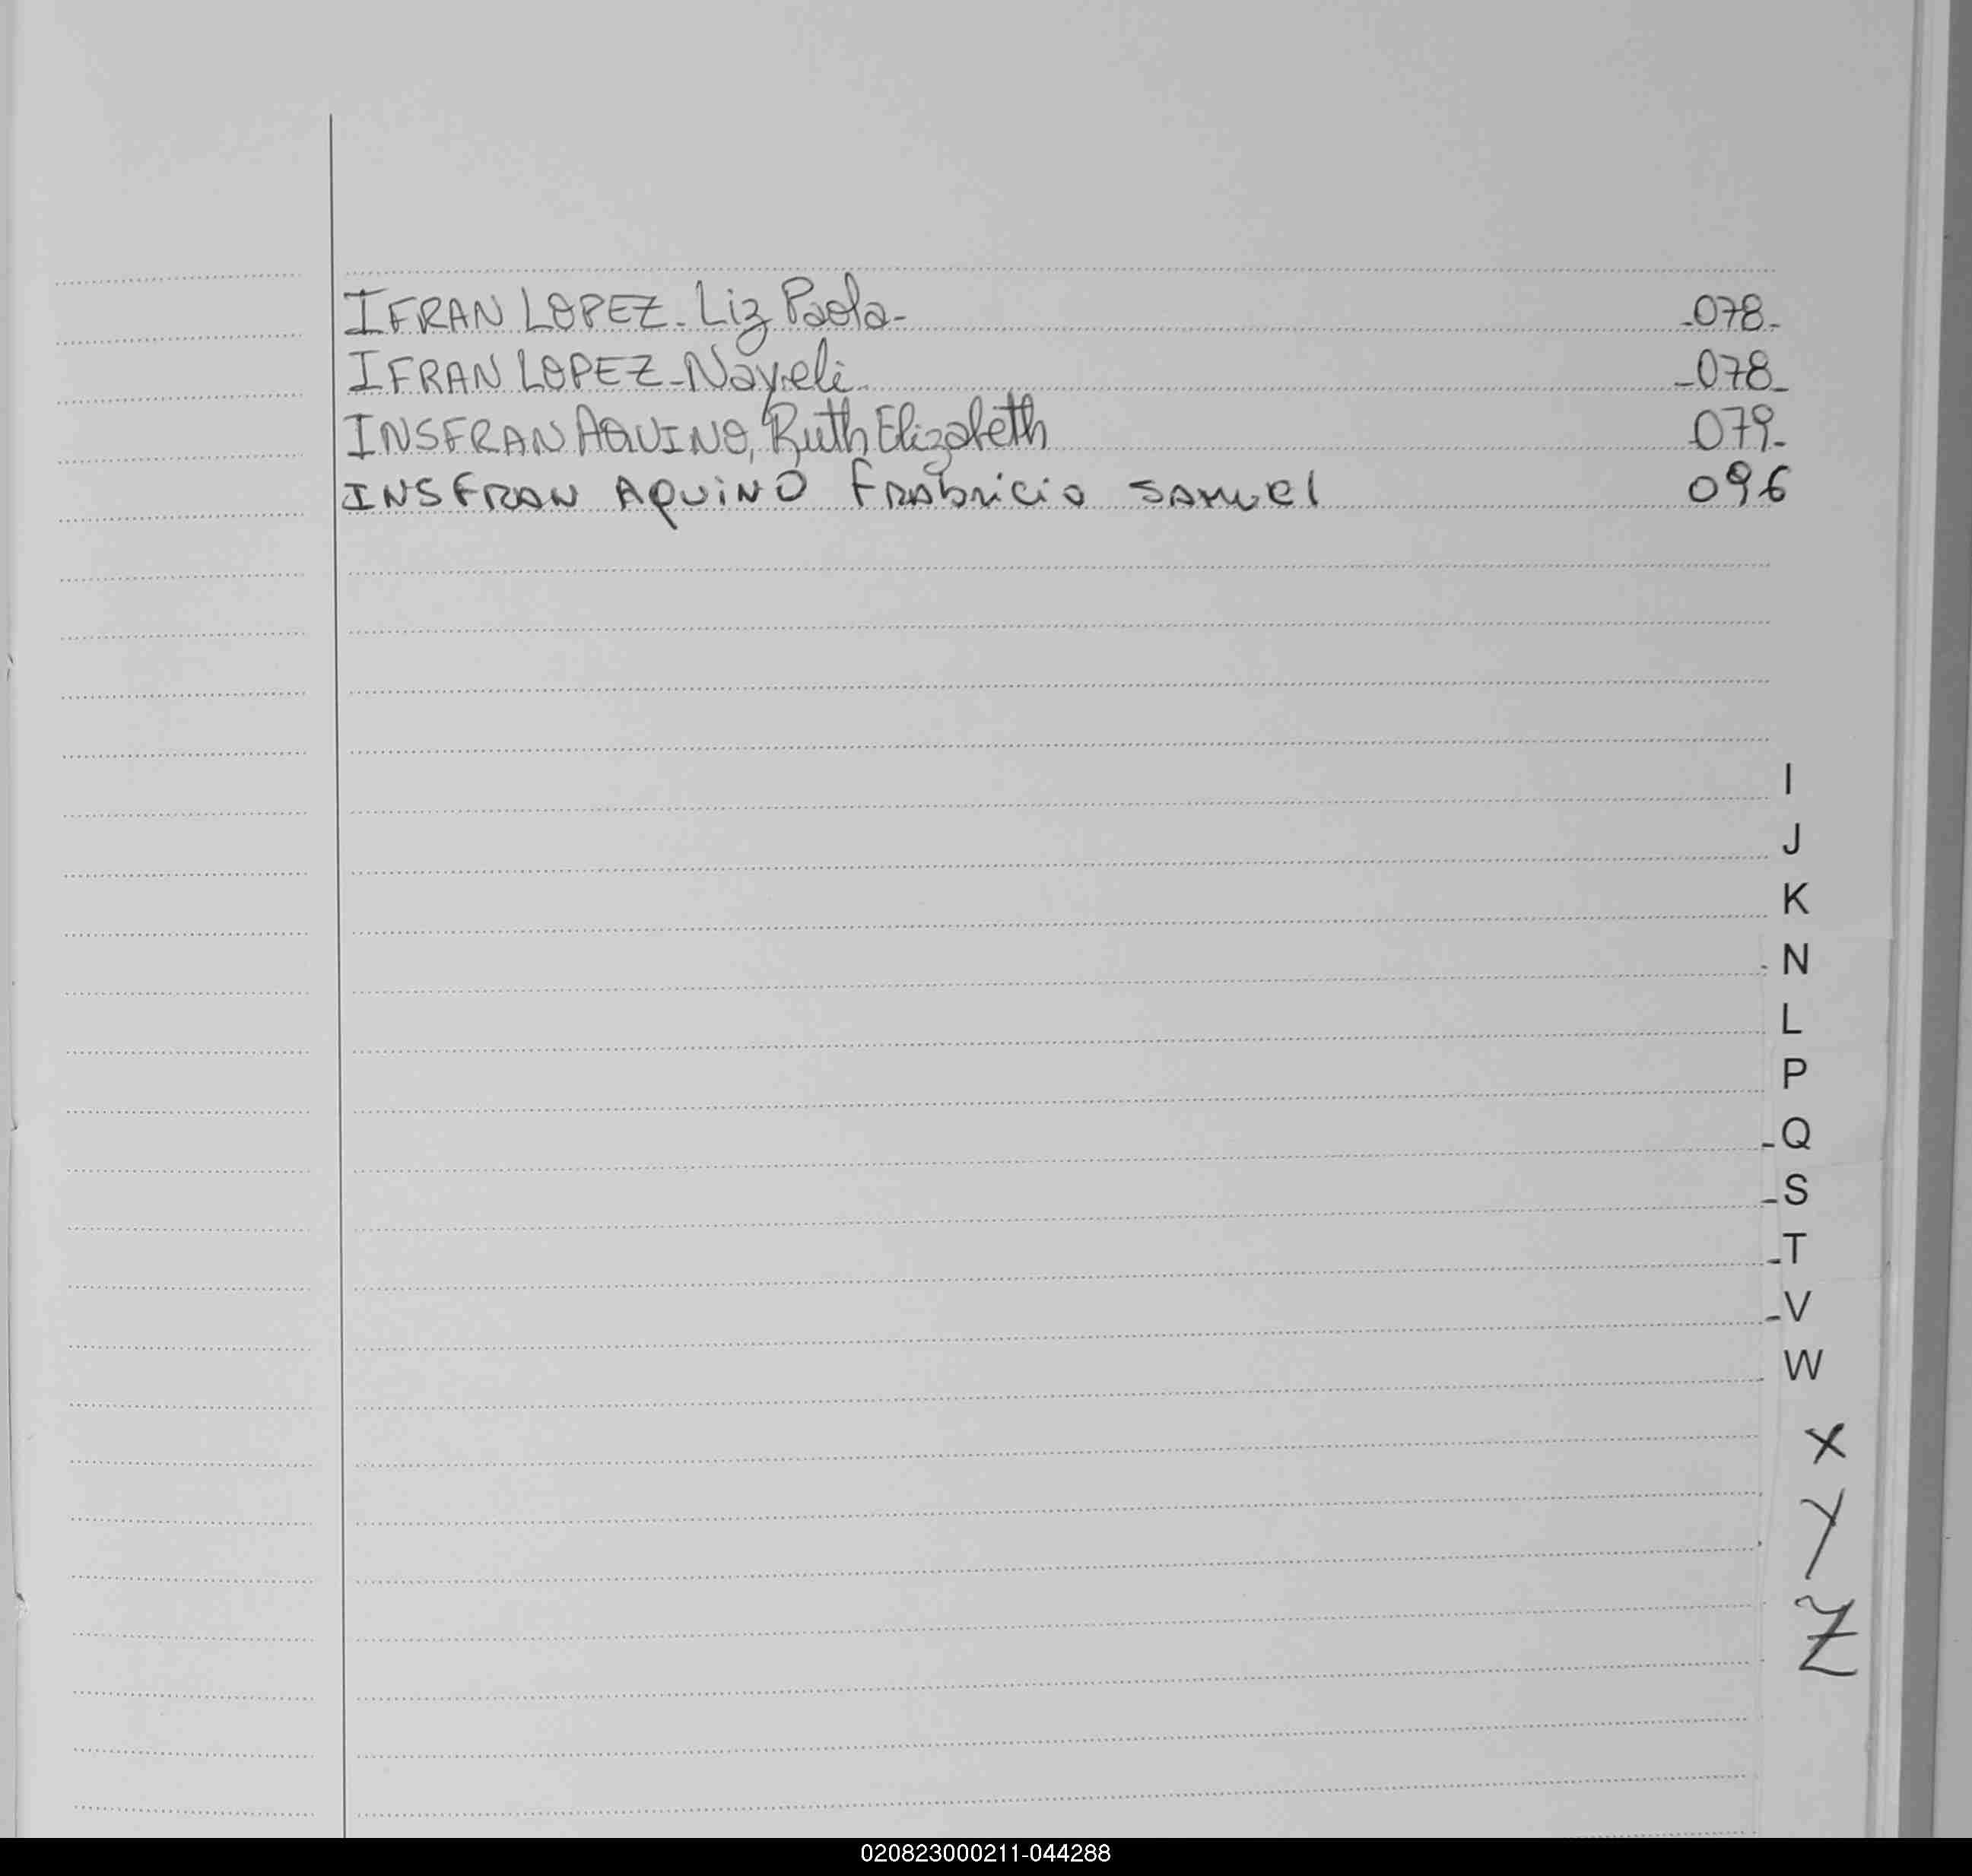 IFRAN LOPEZ. Liz Paola- -078-
IFRAN LOPEZ-Nayeli -078-
INSFRAN AQUINO, Ruth Elizabeth 079-
INSFRAN AQUINO Frabricio SAMUEL 096
I
J
K
N
L
P
Q
S
T
V
W
X
Y
Z
020823000211-044288